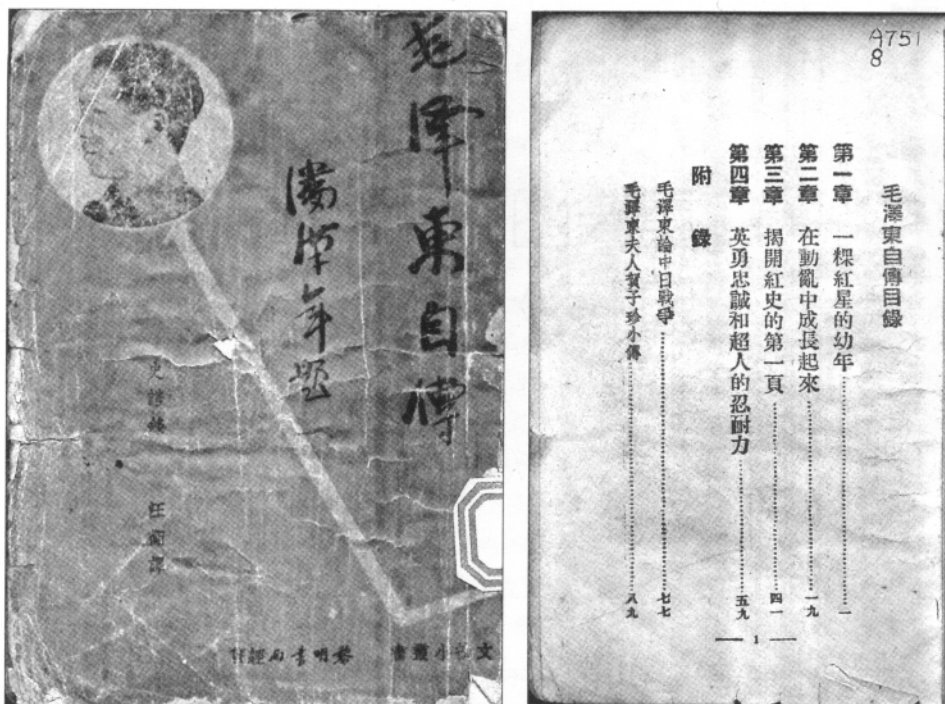 毛澤東自傳
潘漢年題
史諾錄 汪衡譯
文 小叢書 黎明書局經售
A751
8
毛澤東自傳目錄
第一章 一棵紅星的幼年……一
第二章 在動亂中成長起來……一九
第三章 揭開紅史的第一頁……四一
第四章 英勇忠誠和超人的忍耐力……五九
附錄
毛澤東論中日戰爭……七七
毛澤東夫人賀子珍小傳……八九
— 1 —